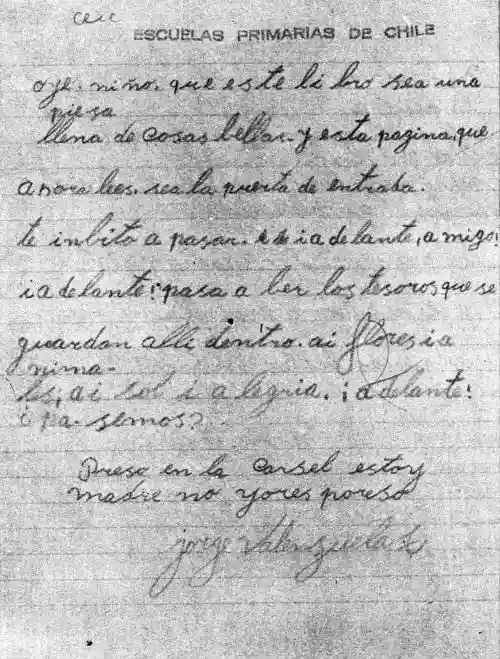 ESCUELAS PRIMARIAS DE CHILE
oye. niño. que este libro sea una
piesa
llena de cosas bellas. y esta pagina, que
ahora lees. sea la puerta de entrada.
te inbito a pasar. iadelante, amigo!
iadelante! pasa a ber los tesoros que se
guardan alli dentro. ai flores i a
nima-
les, ai sol i alegria. ¡adelante!
¿ pa-semos?
Preso en la Carsel estoy
madre no yores poreso
jorge Valenzuela